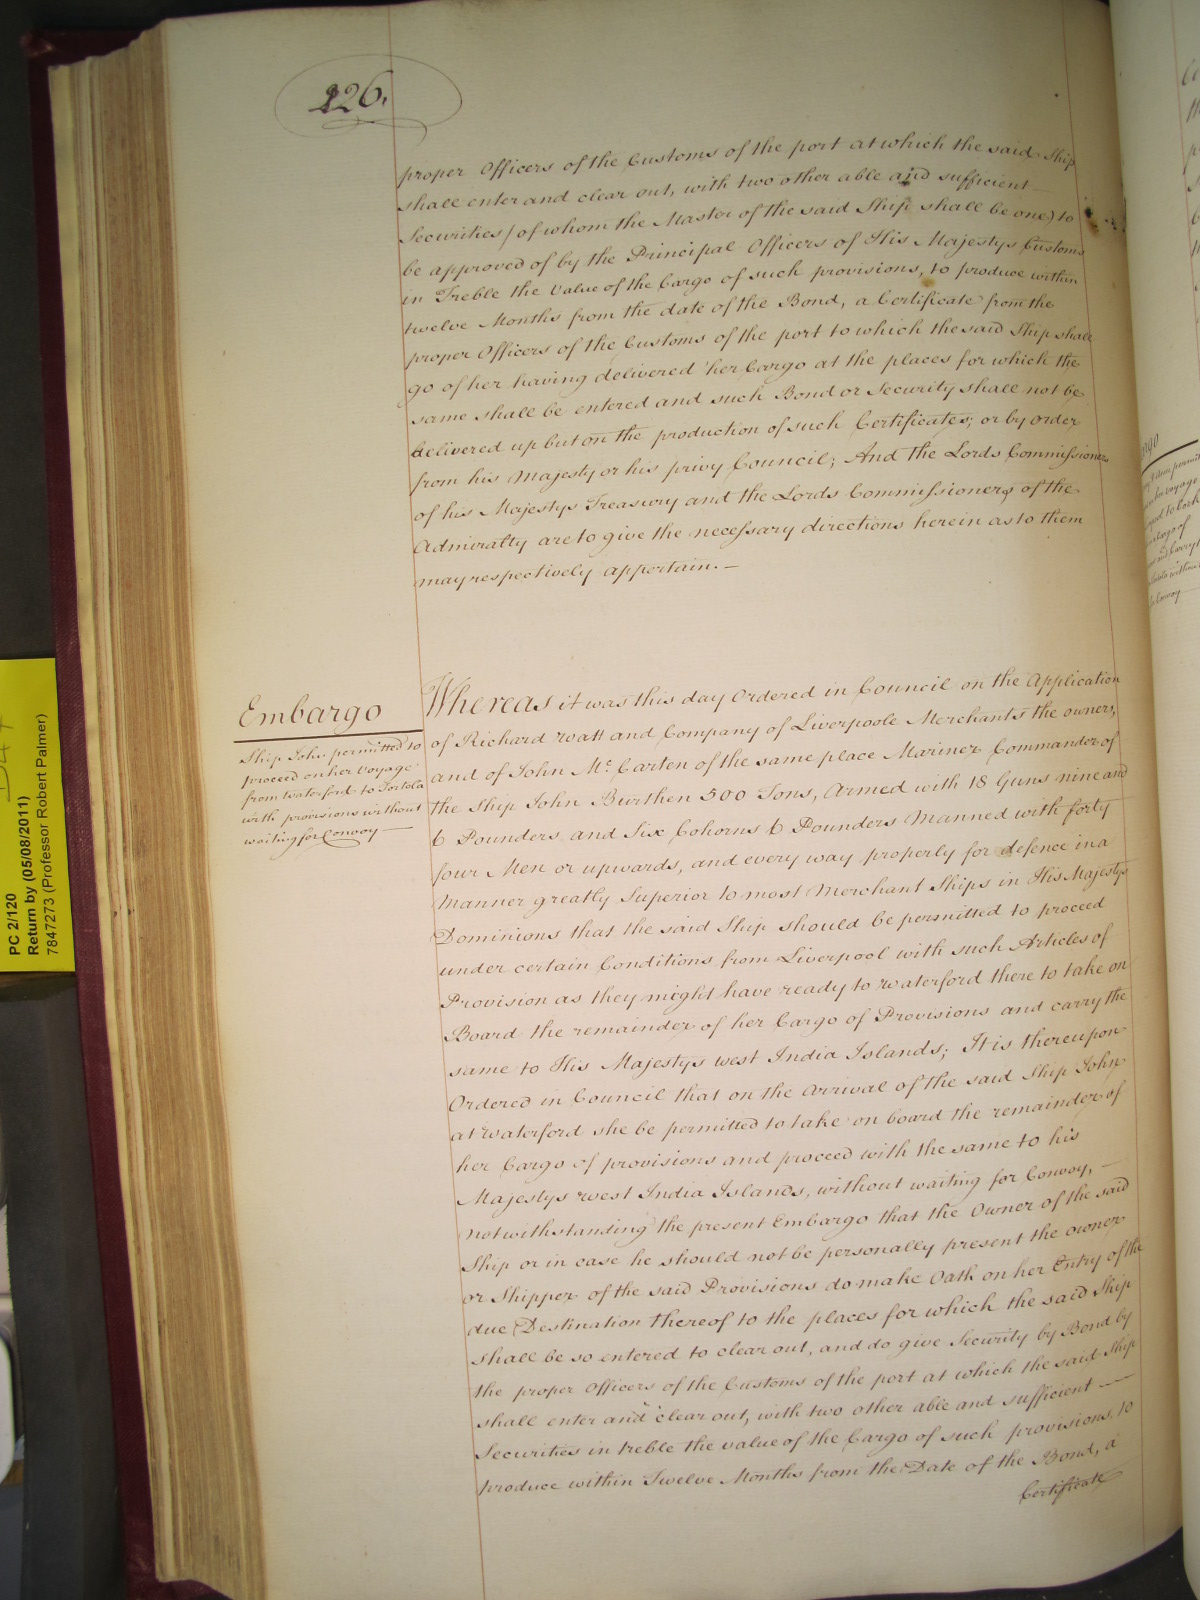 226.
proper Officers of the Customs of the port at which the said Ship
shall enter and clear out, with two other able and sufficient
Securities (of whom the Master of the said Ship shall be one) to
be approved of by the Principal Officers of His Majestys Customs
in Treble the Value of the Cargo of such provisions, to produce within
twelve Months from the date of the Bond, a Certificate from the
proper Officers of the Customs of the port to which the said Ship shall
go of her having delivered her Cargo at the places for which the
same shall be entered and such Bond or Security shall not be
delivered up but on the production of such Certificates; or by order
from his Majesty or his privy Council; And the Lords Commissioners
of his Majestys Treasury and the Lords Commissioners of the
Admiralty are to give the necessary directions herein as to them
may respectively appertain. —
Embargo
Ship John permitted to
proceed on her Voyage
from Waterford to Tortola
with provisions without
waiting for Convoy —
Whereas it was this day Ordered in Council on the Application
of Richard Watt and Company of Liverpoole Merchants the owners,
and of John Mc. Carten of the same place Mariner Commander of
the Ship John Burthen 500 Tons, Armed with 18 Guns nine and
6 Pounders and Six Cohorns 6 Pounders Manned with forty
four Men or upwards, and every way properly for defence in a
Manner greatly Superior to most Merchant Ships in His Majestys
Dominions that the said Ship should be permitted to proceed
under certain Conditions from Liverpool with such Articles of
Provision as they might have ready to Waterford there to take on
Board the remainder of her Cargo of Provisions and carry the
same to His Majestys West India Islands; It is thereupon
Ordered in Council that on the Arrival of the said Ship John
at Waterford she be permitted to take on board the remainder of
her Cargo of provisions and proceed with the same to his
Majestys West India Islands, without waiting for Convoy, —
notwithstanding the present Embargo that the Owner of the said
Ship or in case he should not be personally present the owner
or Shipper of the said Provisions do make Oath on her Entry of the
due Destination thereof to the places for which the said Ship
shall be so entered to clear out, and do give Security by Bond by
the proper Officers of the Customs of the port at which the said Ship
shall enter and clear out, with two other able and sufficient —
Securities in treble the value of the Cargo of such provisions, to
produce within Twelve Months from the Date of the Bond, a
Certificate
PC 2/120
Return by (05/08/2011)
7847273 (Professor Robert Palmer)